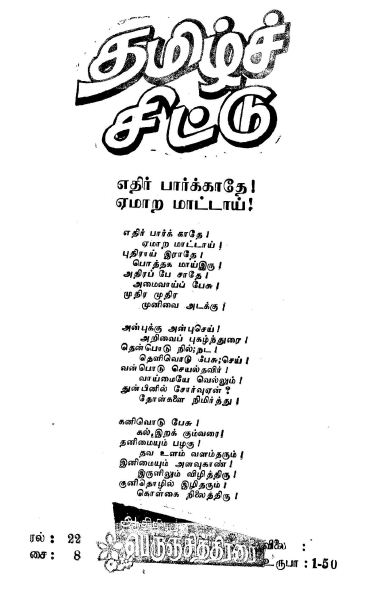 தமிழ்ச்
சிட்டு
எதிர் பார்க்காதே!
ஏமாற மாட்டாய்!
எதிர் பார்க் காதே!
ஏமாற மாட்டாய்!
புதிராய் இராதே!
பொத்தக மாய்இரு!
அதிரப் பே சாதே!
அமைவாய்ப் பேசு!
முதிர முதிர
முனிவை அடக்கு!
அன்புக்கு அன்புசெய்!
அறிவைப் புகழ்ந்துரை!
தென்பொடு நில்;நட!
தெளிவொடு பேசு;செய்!
வன்பொடு செயல்தவிர்!
வாய்மையே வெல்லும்!
துன்பினில் சோர்வுஏன்?
தோள்களை நிமிர்த்து!
கனிவொடு பேசு!
கல்,இறக் கும்வரை!
தனிமையும் பழகு!
தவ உளம் வளம்தரும்!
இனிமையும் அளவுகாண்!
இருளிலும் விழித்திரு!
குனிதொழில் இழிதரும்!
கொள்கை நிலைத்திரு!
ரல்: 22
சை: 8
பெருஞ்சித்திரனார்
விலை :
உருபா: 1-50